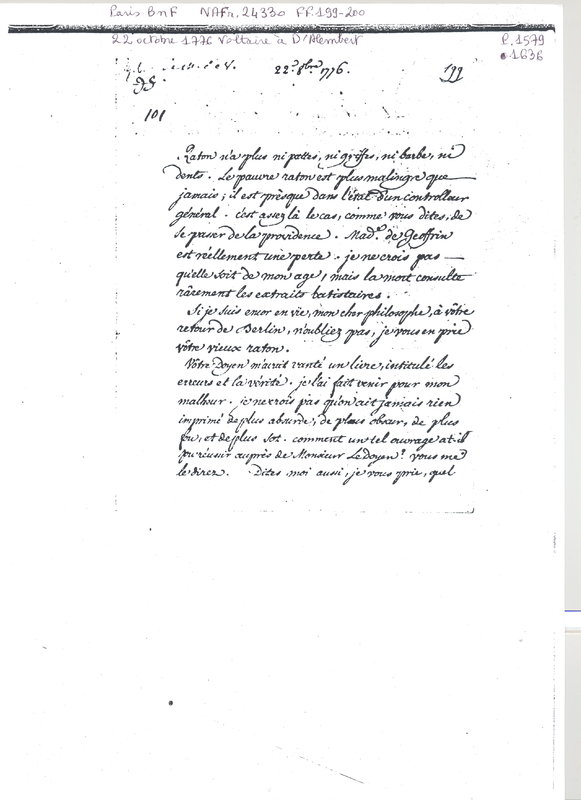 Paris BnF NAFr. 24330 FF. 199-200
22 octobre 1776 Voltaire à D'Alembert
P. 1579
1636
22e. 8bre. 1776.
199
98
101
Raton n'a plus ni pattes, ni griffes, ni barbe, ni
dents. Le pauvre raton est plus malingre que
jamais; il est presque dans l'état d'un controlleur
général. c'est assez là le cas, comme vous dites, de
se passer de la providence. Made. de Geoffrin
est réellement une perte. je ne crois pas
qu'elle soit de mon age, mais la mort consulte
rarement les extraits batistaires.
Si je suis encor en vie, mon cher philosophe, à vôtre
retour de Berlin, n'oubliez pas, je vous en prie
vôtre vieux raton.
Vôtre Doyen m'avait vanté un livre, intitulé les
erreurs et la vérité. je l'ai fait venir pour mon
malheur. je ne crois pas qu'on ait jamais rien
imprimé de plus absurde, de plus obscur, de plus
fou, et de plus sot. comment un tel ouvrage at-il
pu réussir auprès de Monsieur Le Doyen? vous me
le direz. Dites moi aussi, je vous prie, quel